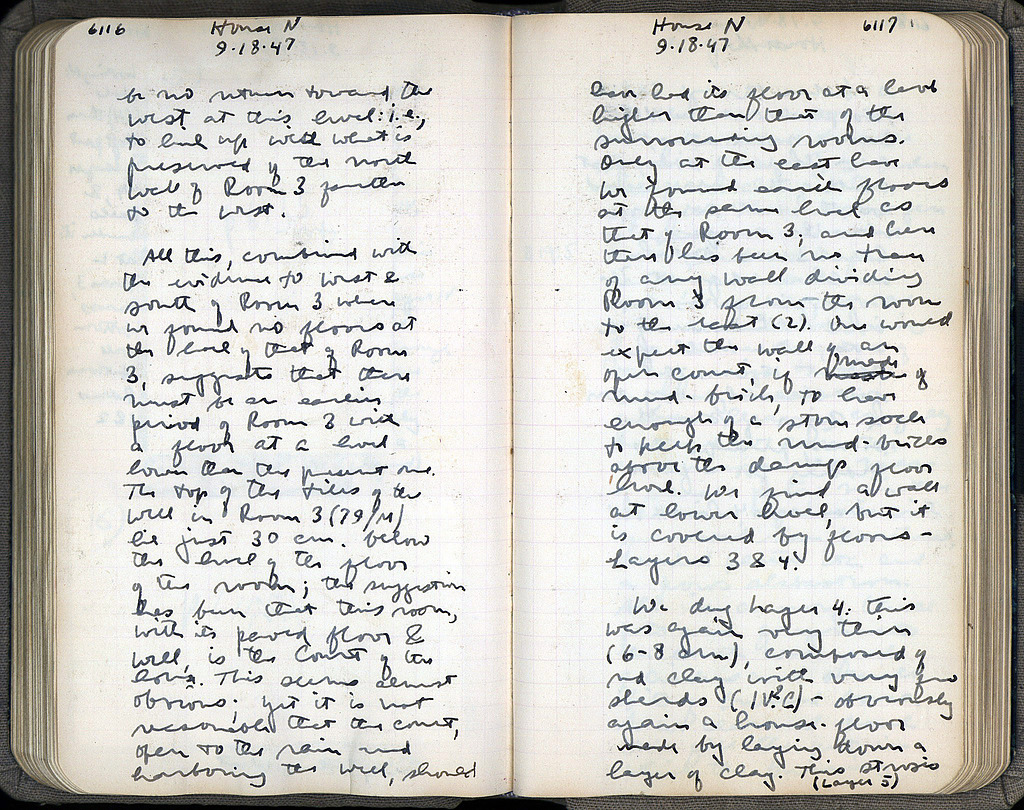 6116
House N
9·18·47
be no return toward the
west at this level: i.e.,
to line up with what is
preserved of the north
wall of Room 3 farther
to the west.
All this, combined with
the evidence to west &
south of Room 3 where
we found no floors at
the level of that of Room
3, suggests that there
must be an earlier
period of Room 3 with
a floor at a level
lower than the present one.
The top of the tiles of the
well in Room 3 (79/M)
lie just 30 cm. below
the level of the floor
of the room; the suggestion
has been that this room,
with its paved floor &
well, is the Court of the
house. This seems almost
obvious; yet it is not
reasonable that the court,
open to the rain and
harboring the well, should
6117
House N
9·18·47
have had its floor at a level
higher than that of the
surrounding rooms.
Only at the east have
we found earth floors
at the same level as
that of Room 3; and here
there has been no trace
of any wall dividing
Room 3 from the room
to the east (2). One would
expect the wall of an
open court, if made of
mud-brick, to have
enough of a stone socle
to keep the mud-bricks
above the damp floor
level. We find a wall
at lower level, but it
is covered by floors –
Layers 3 & 4.
We dug Layer 4: this
was again very thin
(6-8 cm), composed of
red clay with very few
sherds (IV c) – obviously
again a house-floor
made by laying down a
layer of clay. This strosis
(Layer 5)